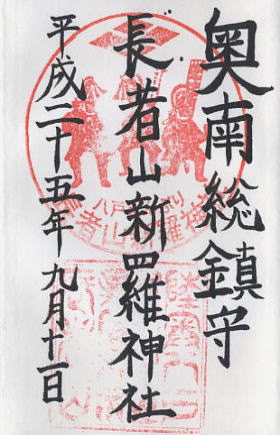 奥南総鎮守
長者山新羅神社
平成二十五年 九月十一日